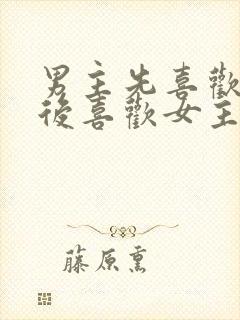 男主先喜歡
後喜歡女主
藤原熏